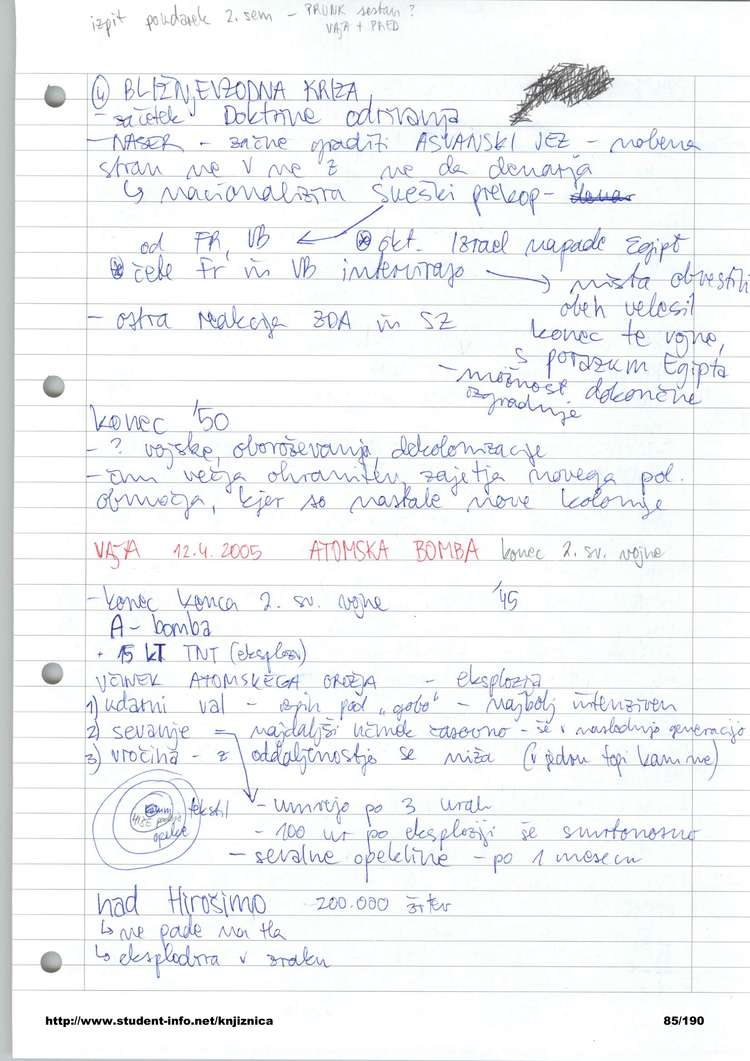 izpit poudarek 2. sem - PRUNK sestan ?
VAJA + PRED
④ BLIŽNJEVZODNA KRIZA
- začetek Doktrine odrivanja
- NASER - začne graditi ASUANSKI JEZ - nobena
stran ne V ne Z ne da denarja
↳ nacionalizira Sueški prekop -
od FR, VB ⊗ okt. Izrael napade Egipt
⊗ čete Fr in VB intervirajo → nista obvestili
obeh velesil
- ostra reakcija ZDA in SZ
konec te vojne,
s porazum Egipta
- možnost dokončne
izgradnje
konec '50
- ? vojske, oboroževanja, dekolonizacije
- čim večja ohranitev, zajetja novega pol.
območja, kjer so nastale nove kolonije
VAJA 12.4. 2005 ATOMSKA BOMBA konec 2. sv. vojne
- konec konca 2. sv. vojne '45
A - bomba
15 kT TNT (eksploziv)
UČINEK ATOMSKEGA OROŽJA - eksplozija
1) udarni val - izpih pod "gobo" - najbolj intenziven
2) sevanje = najdaljši učinek časovno - še v naslednjo generacijo
3) vročina - z oddaljenostjo se niža (v jedru topi kamine)
kamni
tekstil
opeke
- umrejo po 3 urah
- 100 ur po eksploziji še smrtonosno
- sevalne opekline - po 1 mesecu
nad Hirošimo 200.000 žrtev
↳ ne pade na tla
↳ eksplodira v zraku
http://www.student-info.net/knjiznica 85/190